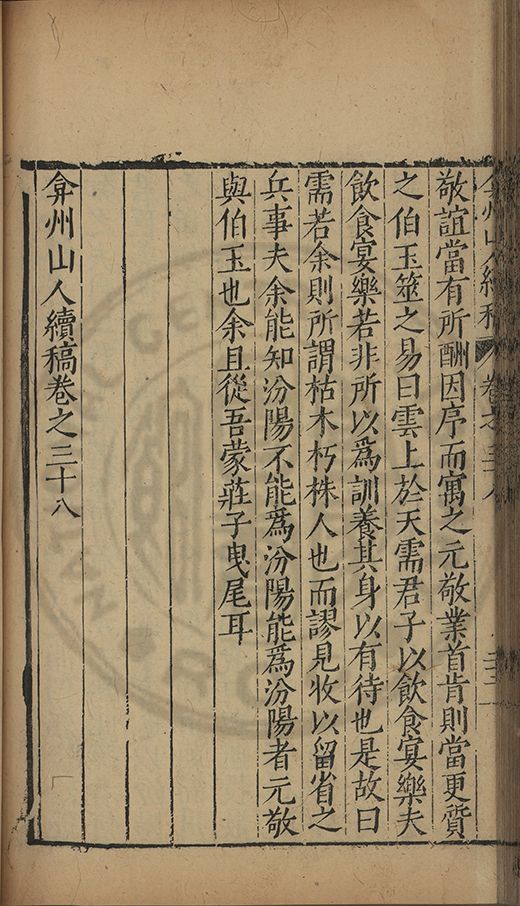 弇州山人續稿 卷之三十八
敬誼當有所酬因序而寓之元敬業首肯則當更質
之伯玉筮之易曰雲上於天需君子以飲食宴樂夫
飲食宴樂若非所以爲訓養其身以有待也是故曰
需若余則所謂枯木朽株人也而謬見收以留省之
兵事夫余能知汾陽不能爲汾陽能爲汾陽者元敬
與伯玉也余且從吾蒙莊子曳尾耳
弇州山人續稿卷之三十八